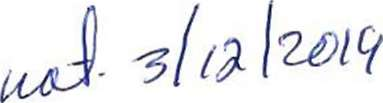 nat. 3/12/2019